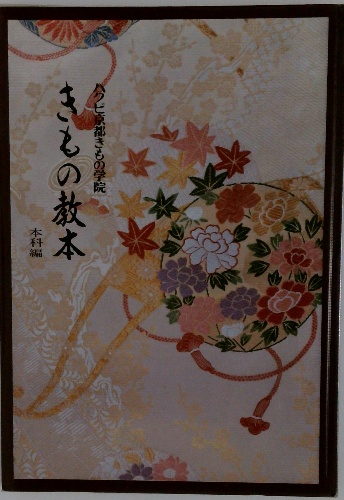 ハクビ京都きもの学院
きもの教本
本科編